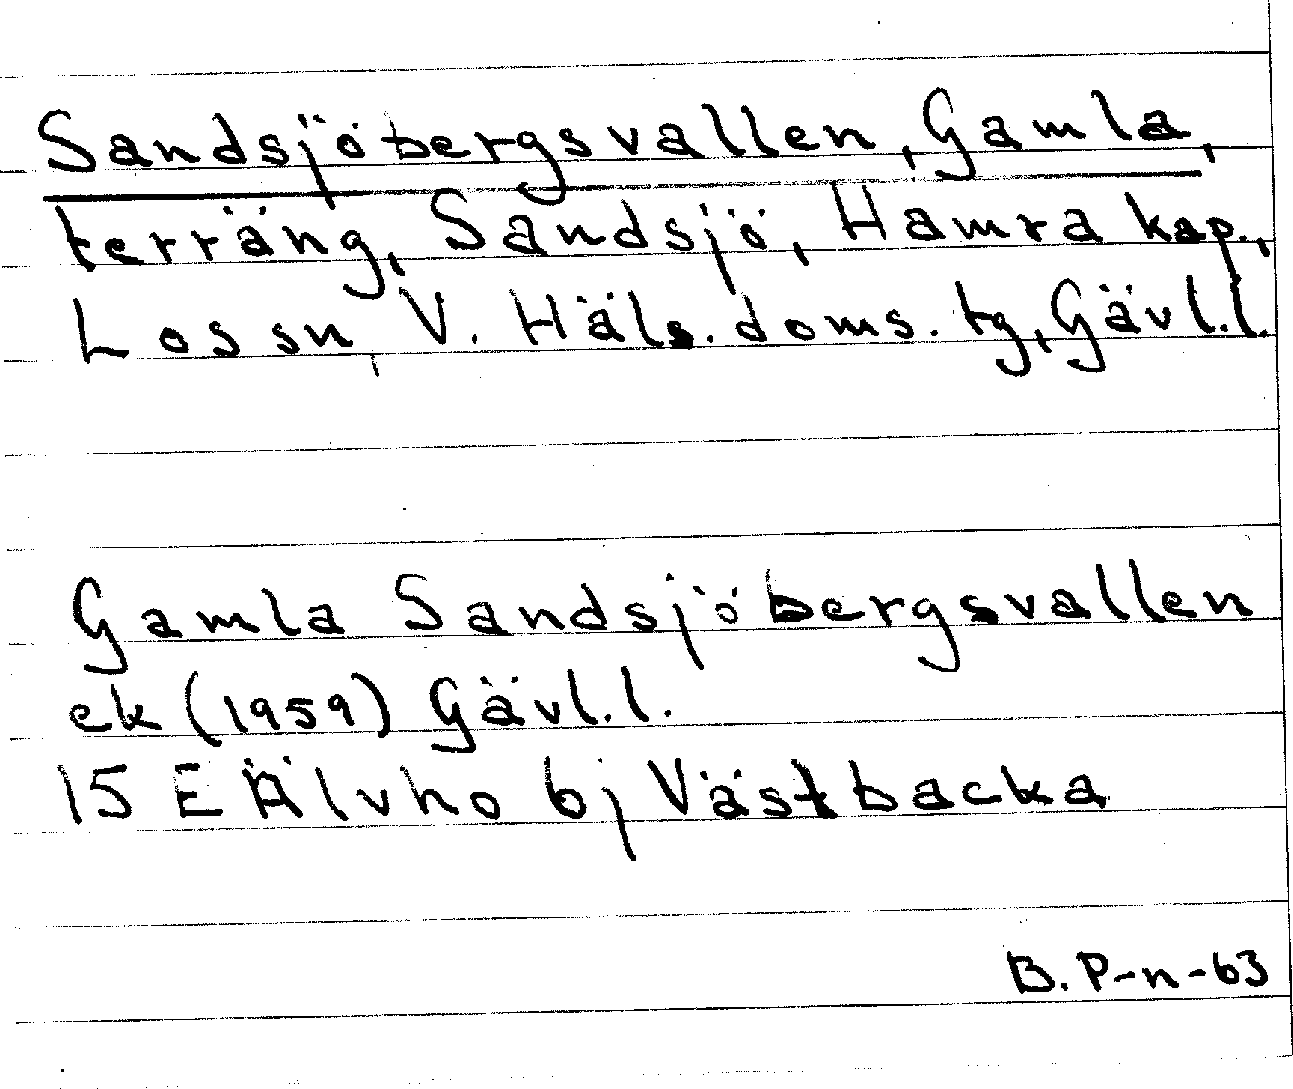 Sandsjöbergsvallen, Gamla,
terräng, Sandsjö, Hamra kap.,
Los sn, V. Häls. doms. tg, Gävl.l.
Gamla Sandsjöbergsvallen
ek (1959) Gävl.l.
15 E Älvho 6j Västbacka
B. P-n-63